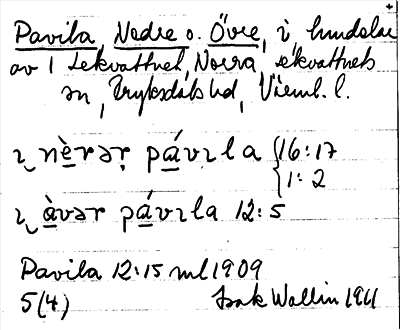 Pavila, Nedre o. Övre, i hundelar
av 1 Lekvattnet, Norra, Lekvattnets
sn, Fryksdals hd, Värml. l.
ɩ nèrər pávɩla { 16:17
1:2
ɩ àvər pávɩla 12:5
Pavila 12:15 ml 1909
5(4) Isak Wallin 1911